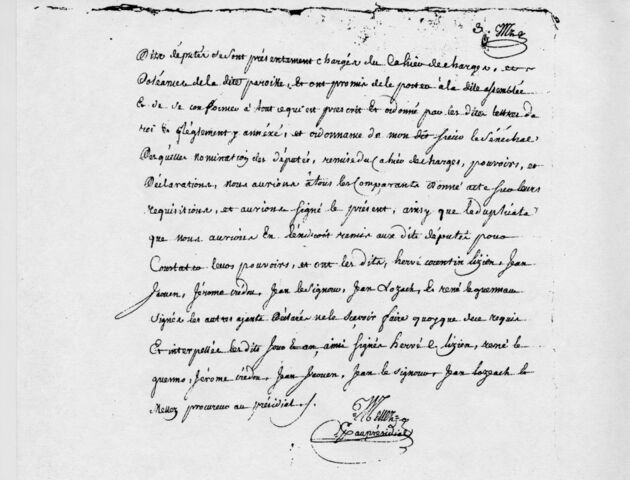 3.
Dits députés se sont présentement chargés du Cahier de charges, et
doléances de la dite paroisse, et ont promis de le porter à la dite assemblée
& de se conformer à tout ce qui est prescrit et ordonné par les dites lettres du
roi & réglement y annéxé, et ordonnance de mon dit sieur le sénéchal
Desquelles nomination des députés, remise du Cahier de charges, pouvoirs, et
Déclarations, nous aurions à tous les Comparants donné acte sur leurs
requisitions, et aurions signé le présent, ainsy que le duplicata
que nous aurions En l'endroit remis aux dits députés pour
Constater leurs pouvoirs, et ont les dits, hervé corentin lizien, Jean
Jaouen, Jérome crédou, Jean le signour, Jean Lozach, & rené le guennau
signés les autres ayants Déclarés ne le sçavoir faire quoyque de ce requis
Et interpellés les dits Jour & an, ainsi signés hervé c lizien, rené le
guennau, Jérome crédou, Jean Jaouen, Jean le signour, Jean Lozeach &
procureur au présidial /.
au présidial